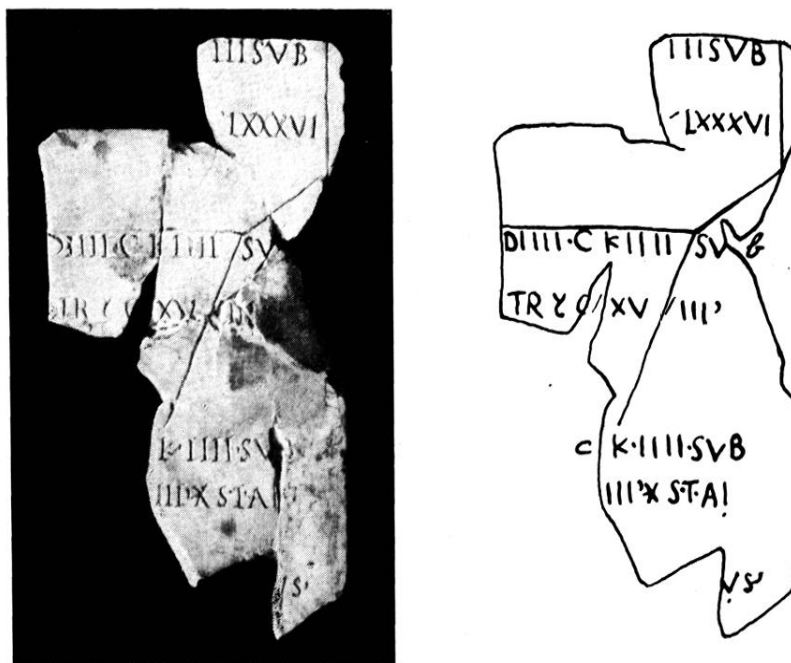 IIISVB
LXXXVI
DIIII·C K IIII SV
TR
XV
K·IIII·SV
III X S·T·A
S'
IIISVB
'LXXXVI
DIIII·C K IIII SV B
TR C XV /III'
C K·IIII·SVB
III'X S·T·AI
VS'